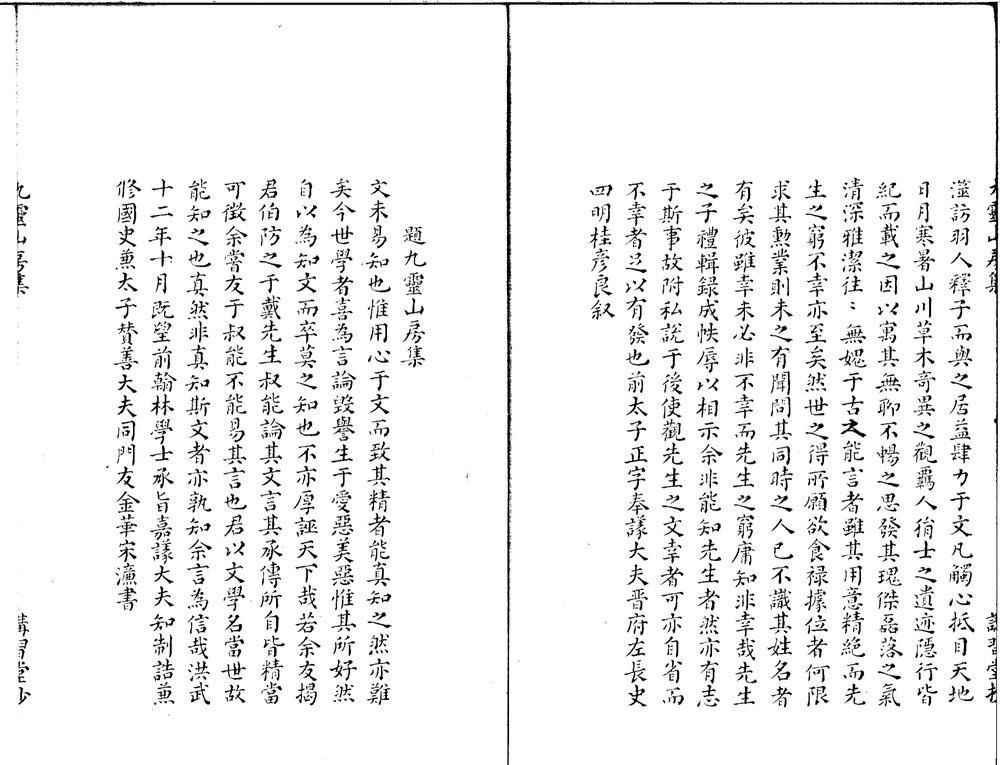 滋訪羽人釋子而與之居益肆力于文凡觸心抵目天地
日月寒暑山川草木奇異之觀羈人狷士之遺迹隱行皆
紀而載之因以寓其無聊不暢之思發其瑰傑磊落之氣
清深雅潔往〻無媿于古之能言者雖其用意精絶而先
生之窮不幸亦至矣然世之得所願欲食禄據位者何限
求其勲業則未之有聞問其同時之人已不識其姓名者
有矣彼雖幸未必非不幸而先生之窮庸知非幸哉先生
之子禮輯録成帙辱以相示余非能知先生者然亦有志
于斯事故附私説于後使觀先生之文幸者可亦自省而
不幸者足以有發也前太子正字奉議大夫晋府左長史
四明桂彦良叙
題九靈山房集
文未易知也惟用心于文而致其精者能真知之然亦難
矣今世學者喜為言論毀譽生于愛惡美惡惟其所好然
自以為知文而卒莫之知也不亦厚誣天下哉若余友揭
君伯防之于戴先生叔能論其文言其承傳所自皆精當
可徴余嘗友于叔能不能易其言也君以文學名當世故
能知之也真然非真知斯文者亦孰知余言為信哉洪武
十二年十月既望前翰林學士承旨嘉議大夫知制誥兼
修國史兼太子賛善大夫同門友金華宋濂書
九靈山房集
講習堂抄